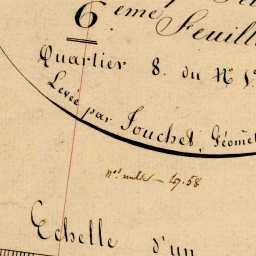 6 ème Feuill
Quartier 8. du N° 1
Levée par Jouchet, Géomèt
19.58
Echelle d'un